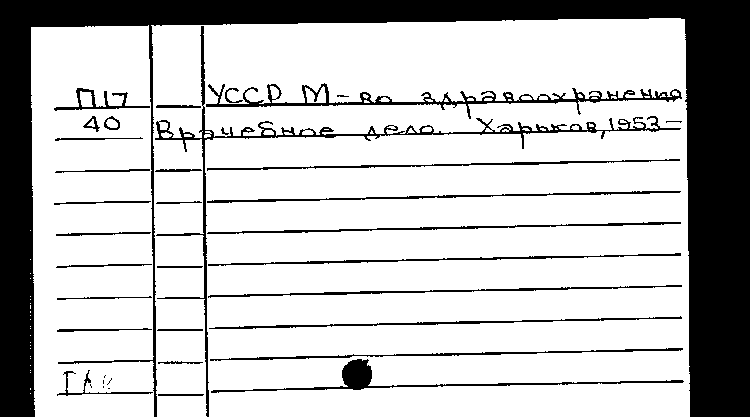 П17 УССР М-во здравоохранения
40 Врачебное дело. Харьков, 1953-